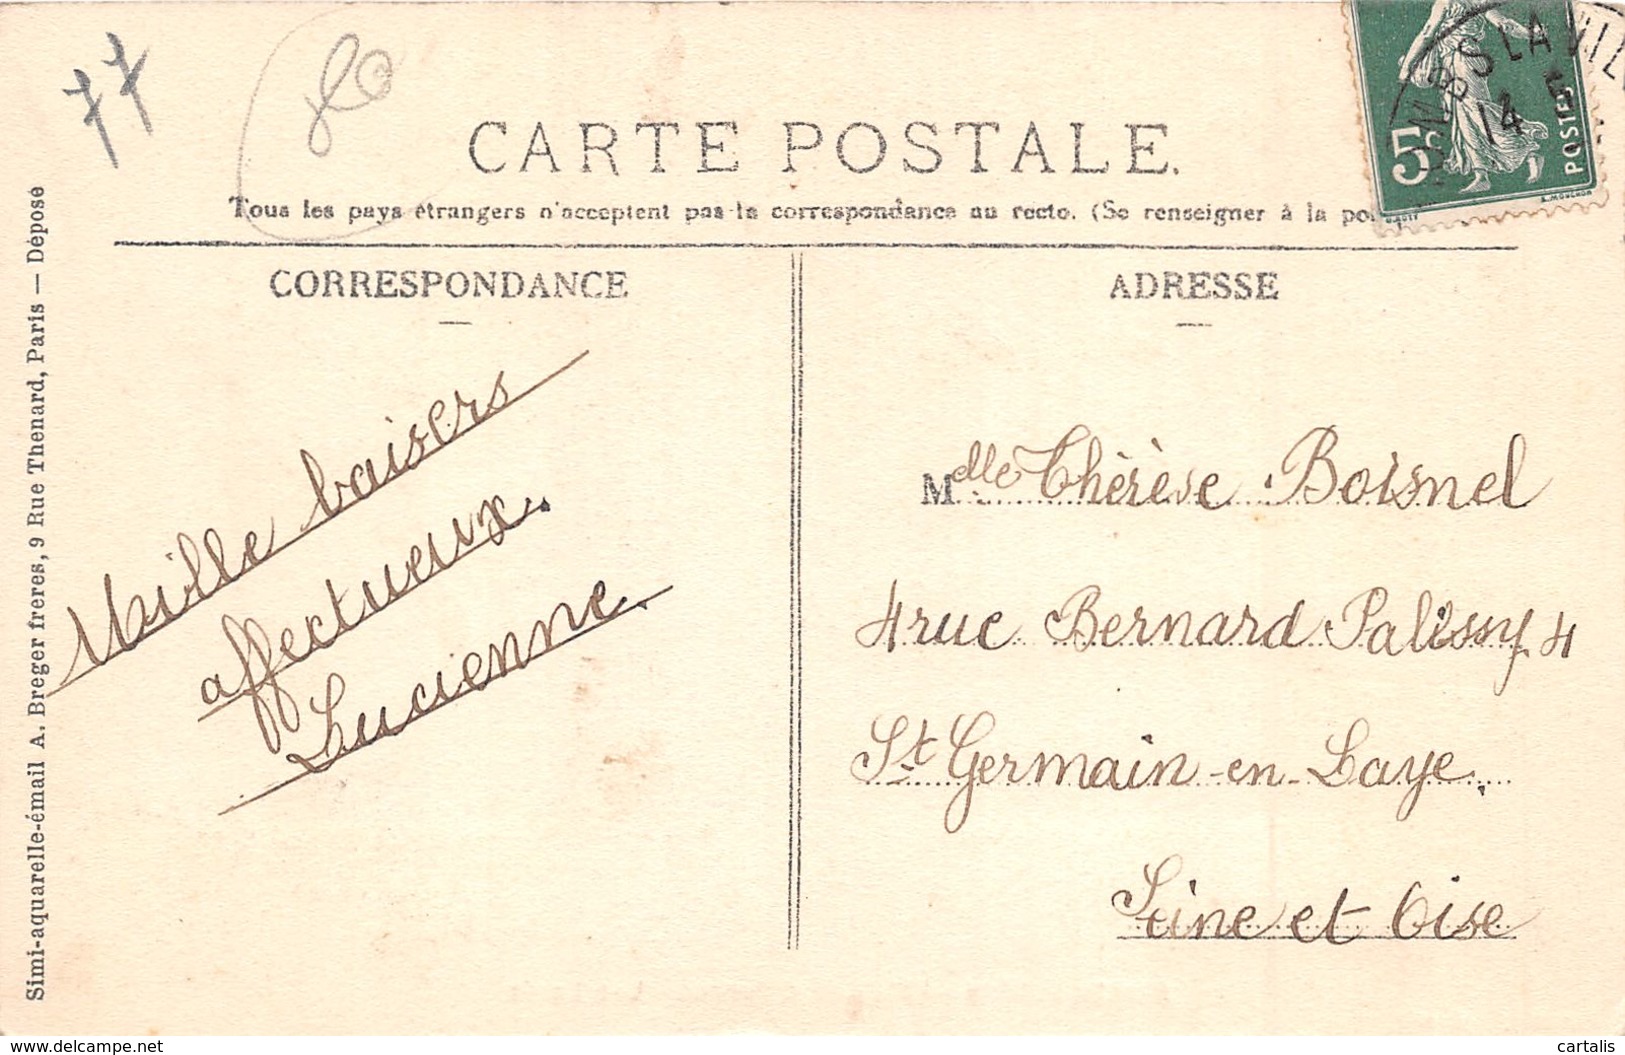 77
CARTE POSTALE.
Tous les pays étrangers n'acceptent pas la correspondance au recto. (Se renseigner à la
CORRESPONDANCE
ADRESSE
Mille baisers
affectueux.
Lucienne.
Mdlle Thérèse Boisnel
4 rue Bernard Palissy 4
St Germain-en-Laye.
Seine et Oise
Simi-aquarelle-émail A. Breger freres, 9 Rue Thenard, Paris — Déposé
5c
POSTES
14
S LA VIL
www.delcampe.net
cartalis